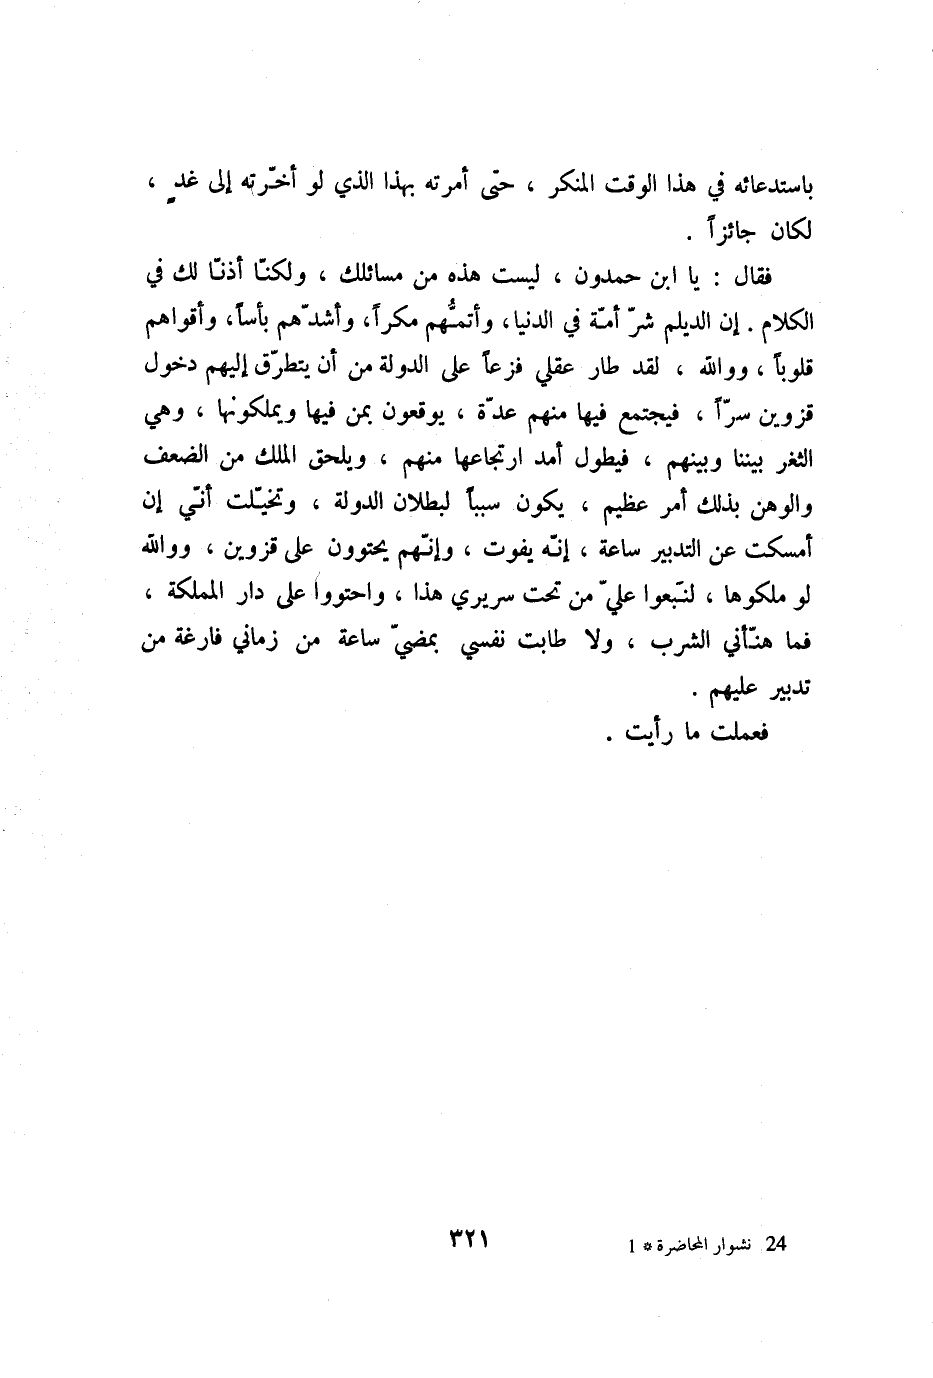 باستدعائه في هذا الوقت المنكر ، حتّى أمرته بهذا الذي لو أخّرته إلى غدٍ ،
لكان جائزاً .
فقال : يا ابن حمدون ، ليست هذه من مسائلك ، ولكنّا أذنّا لك في
الكلام . إن الديلم شرّ أمّة في الدنيا ، وأتمُّهم مكراً ، وأشدّهم بأساً ، وأقواهم
قلوباً ، ووالله ، لقد طار عقلي فزعاً على الدولة من أن يتطرّق إليهم دخول
قزوين سرّاً ، فيجتمع فيها منهم عدّة ، يوقعون بمن فيها ويملكونها ، وهي
الثغر بيننا وبينهم ، فيطول أمد ارتجاعها منهم ، ويلحق الملك من الضعف
والوهن بذلك أمر عظيم ، يكون سبباً لبطلان الدولة ، وتخيّلت أنّي إن
أمسكت عن التدبير ساعة ، إنّه يفوت ، وإنّهم يحتوون على قزوين ، ووالله
لو ملكوها ، لنبعوا عليّ من تحت سريري هذا ، واحتووا على دار المملكة ،
فما هنّأني الشرب ، ولا طابت نفسي بمضيّ ساعة من زماني فارغة من
تدبير عليهم .
فعملت ما رأيت .
24 نشوار المحاضرة * 1
٣٢١